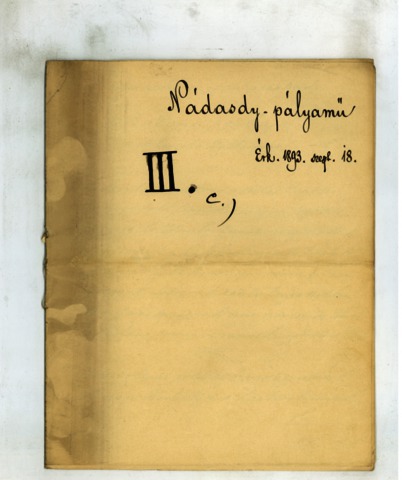 Nádasdy-pályamű
Érk. 1893. szept. 18.
III. c.)